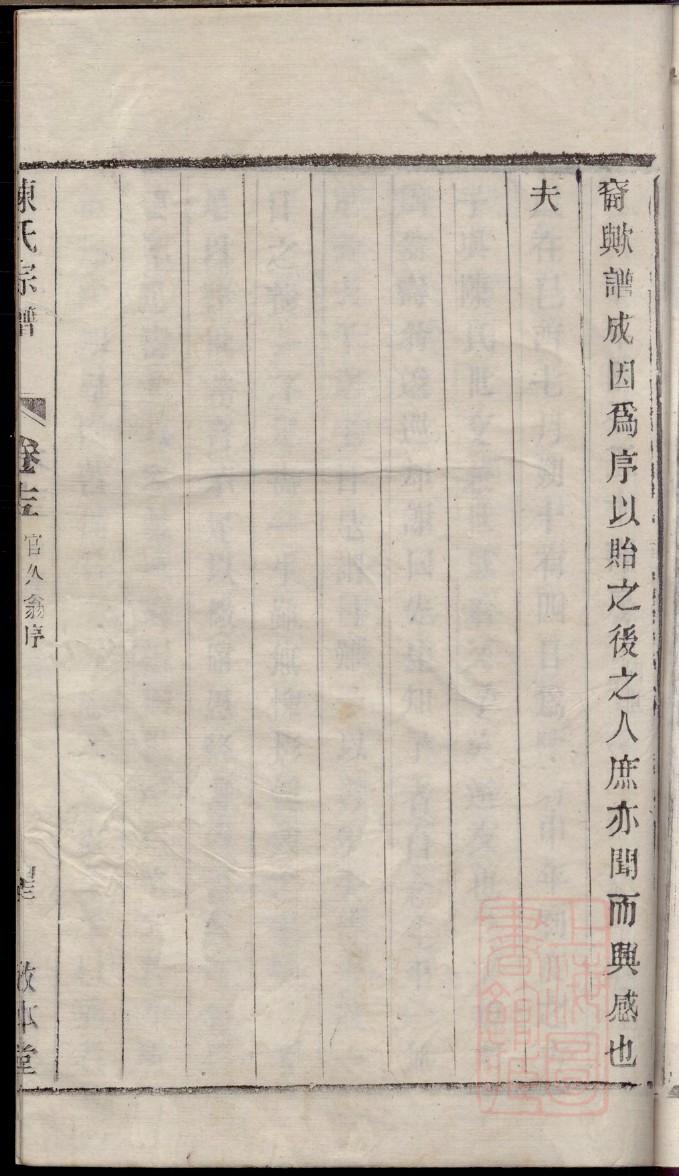 裔歟譜成因爲序以貽之後之人庶亦聞而興感也
夫
陳氏宗譜
官久翁序
敦本堂